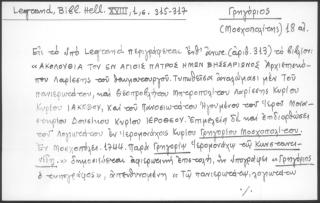 Legrand, Bibl. Hell. XVIII, 1, σ. 315-317
Γρηγόριος
(Μοσχοπολίτης) 18 αἰ.
Εἰς τὸ ὑπὸ Legrand περιγραφέν ἐνθ' ἄνωτ. (ἀριθ. 313) τὸ βιβλίον:
«ΑΚΟΛΟΥΘΙΑ ΤΟΥ ΕΝ ΑΓΙΟΙΣ ΠΑΤΡΟΣ ΗΜΩΝ ΒΗΣΣΑΡΙΩΝΟΣ Ἀρχιεπισκό-
που Λαρίσσης τοῦ θαυματουργοῦ. Τυπωθεῖσα ἀναλώμασι μὲν τοῦ
πανιερωτάτου, καὶ θεοπροβλήτου Μητροπολίτου Λαρίσσης Κυρίου
Κυρίου ΙΑΚΩΒΟΥ, Καὶ τοῦ Πανοσιωτάτου Ἡγουμένου τοῦ Ἱεροῦ Μονα-
στηρίου Δουσίκου Κυρίου ΙΕΡΟΘΕΟΥ. Ἐπιμελείᾳ δὲ καὶ διορθώσει
τοῦ Λογιωτάτου ἐν Ἱερομονάχοις Κυρίου Γρηγορίου Μοσχοπολίτου.
Ἐν Μοσχοπόλει. 1744. Παρὰ Γρηγορίῳ Ἱερομονάχῳ τῷ Κωνσταντι-
νίδῃ.» δημοσιεύεται ἀφιερωτικὴ ἐπιστολή, ἣν ὑπογράφει «Γρηγόριος
ὁ τυπογράφος», ἀπευθυνομένη «Τῷ πανιερωτάτῳ, λογιωτάτῳ
./.